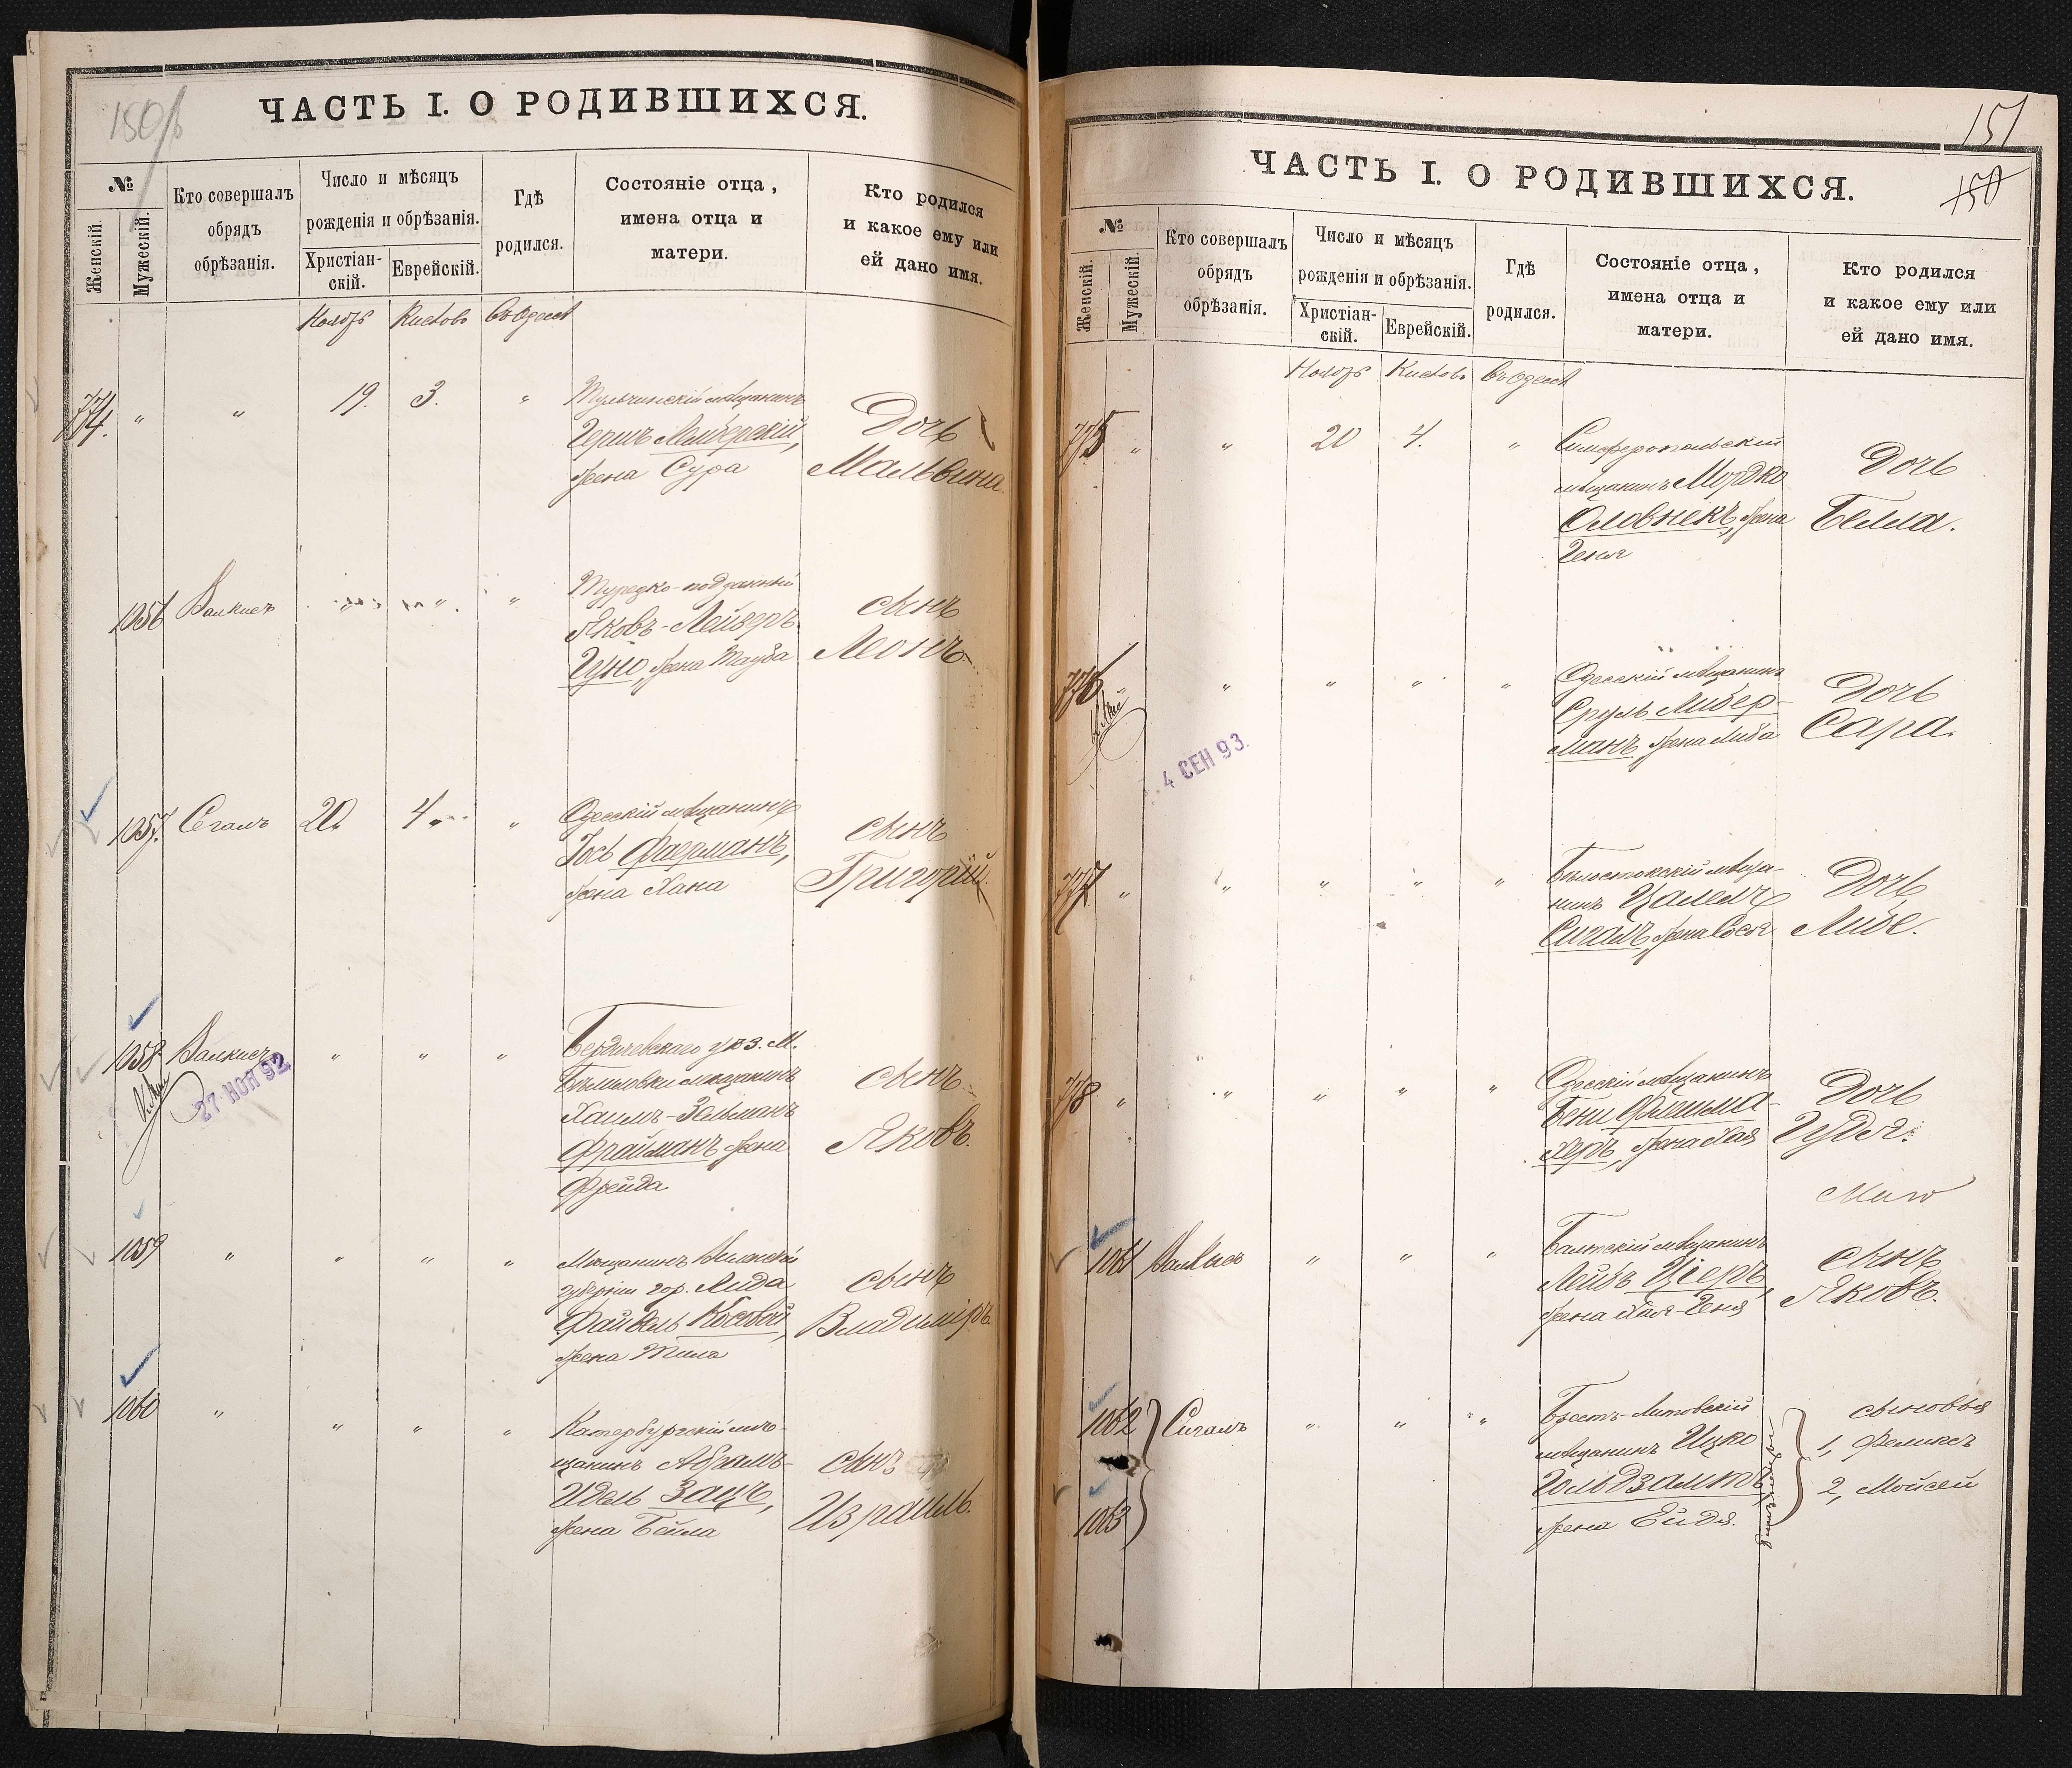 150/б
ЧАСТЬ I. О РОДИВШИХСЯ.
№
Женскій.
Мужескій.
Кто совершалъ
обрядъ
обрѣзанія.
Число и мѣсяцъ
рожденія и обрѣзанія.
Христіан-
скій.
Еврейскій.
Гдѣ
родился.
Состояніе отца,
имена отца и
матери.
Кто родился
и какое ему или
ей дано имя.
Ноябрь Кислово Въ Одессѣ
774. " " 19. 3. "
Тульчинскій мѣщанинъ
Гершъ
жена Сура
Дочь
Мальвина
1056 Валкисъ " " "
Турецко-подданный
Яковъ-Лейзеръ
Гуно, жена Тауба
сынъ
Леонъ
1057. Сегалъ 20. 4 "
Одесскій мѣщанинъ
Іось Фурманъ,
жена Хана
сынъ
Григорій
1058 Валкисъ " " "
27 НОЯ 92
Бердичевскаго уѣз. М.
Бѣлиловки мѣщанинъ
Хаимъ-Зельманъ
Фрайманъ, жена
Фрейда
сынъ
Яковъ.
1059 " " " "
Мѣщанинъ Виленской
губерніи гор. Лида
Файвель Косовой,
жена Тила
сынъ
Владиміръ
1060 " " " "
Катербургскій мѣ-
щанинъ Абрамъ-
Идель Зацъ,
жена Бейла
сынъ
Израиль.
151
150
ЧАСТЬ I. О РОДИВШИХСЯ.
№
Женскій.
Мужескій.
Кто совершалъ
обрядъ
обрѣзанія.
Число и мѣсяцъ
рожденія и обрѣзанія.
Христіан-
скій.
Еврейскій.
Гдѣ
родился.
Состояніе отца,
имена отца и
матери.
Кто родился
и какое ему или
ей дано имя.
Ноябрь Кислово Въ Одессѣ
775 " " 20 4. "
Симферопольскій
мѣщанинъ Мордко
Словнекъ, жена
Геня
Дочь
Белла.
776 " " " " "
4 СЕН 93.
Одесскій мѣщанинъ
Сруль Либер-
манъ, жена Либа
Дочь
Сара.
777 " " " " "
Бѣлостокскій мѣща-
нинъ Цалель
Сигалъ, жена Сося
Дочь
Либе.
778 " " " " "
Одесскій мѣщанинъ
Бени Флешма-
херъ, жена Хая
Дочь
Идя.
1061 Валкисъ " " "
Балтскій мѣщанинъ
Лейбъ Цгеръ,
жена Хая-Геня
сынъ
Яковъ.
1062 Сигалъ " " "
1063
Брестъ-Литовскій
мѣщанинъ Ицко
Гольдзамтъ,
жена Ейдя.
сыновья
1, Феликсъ
2, Мойсей